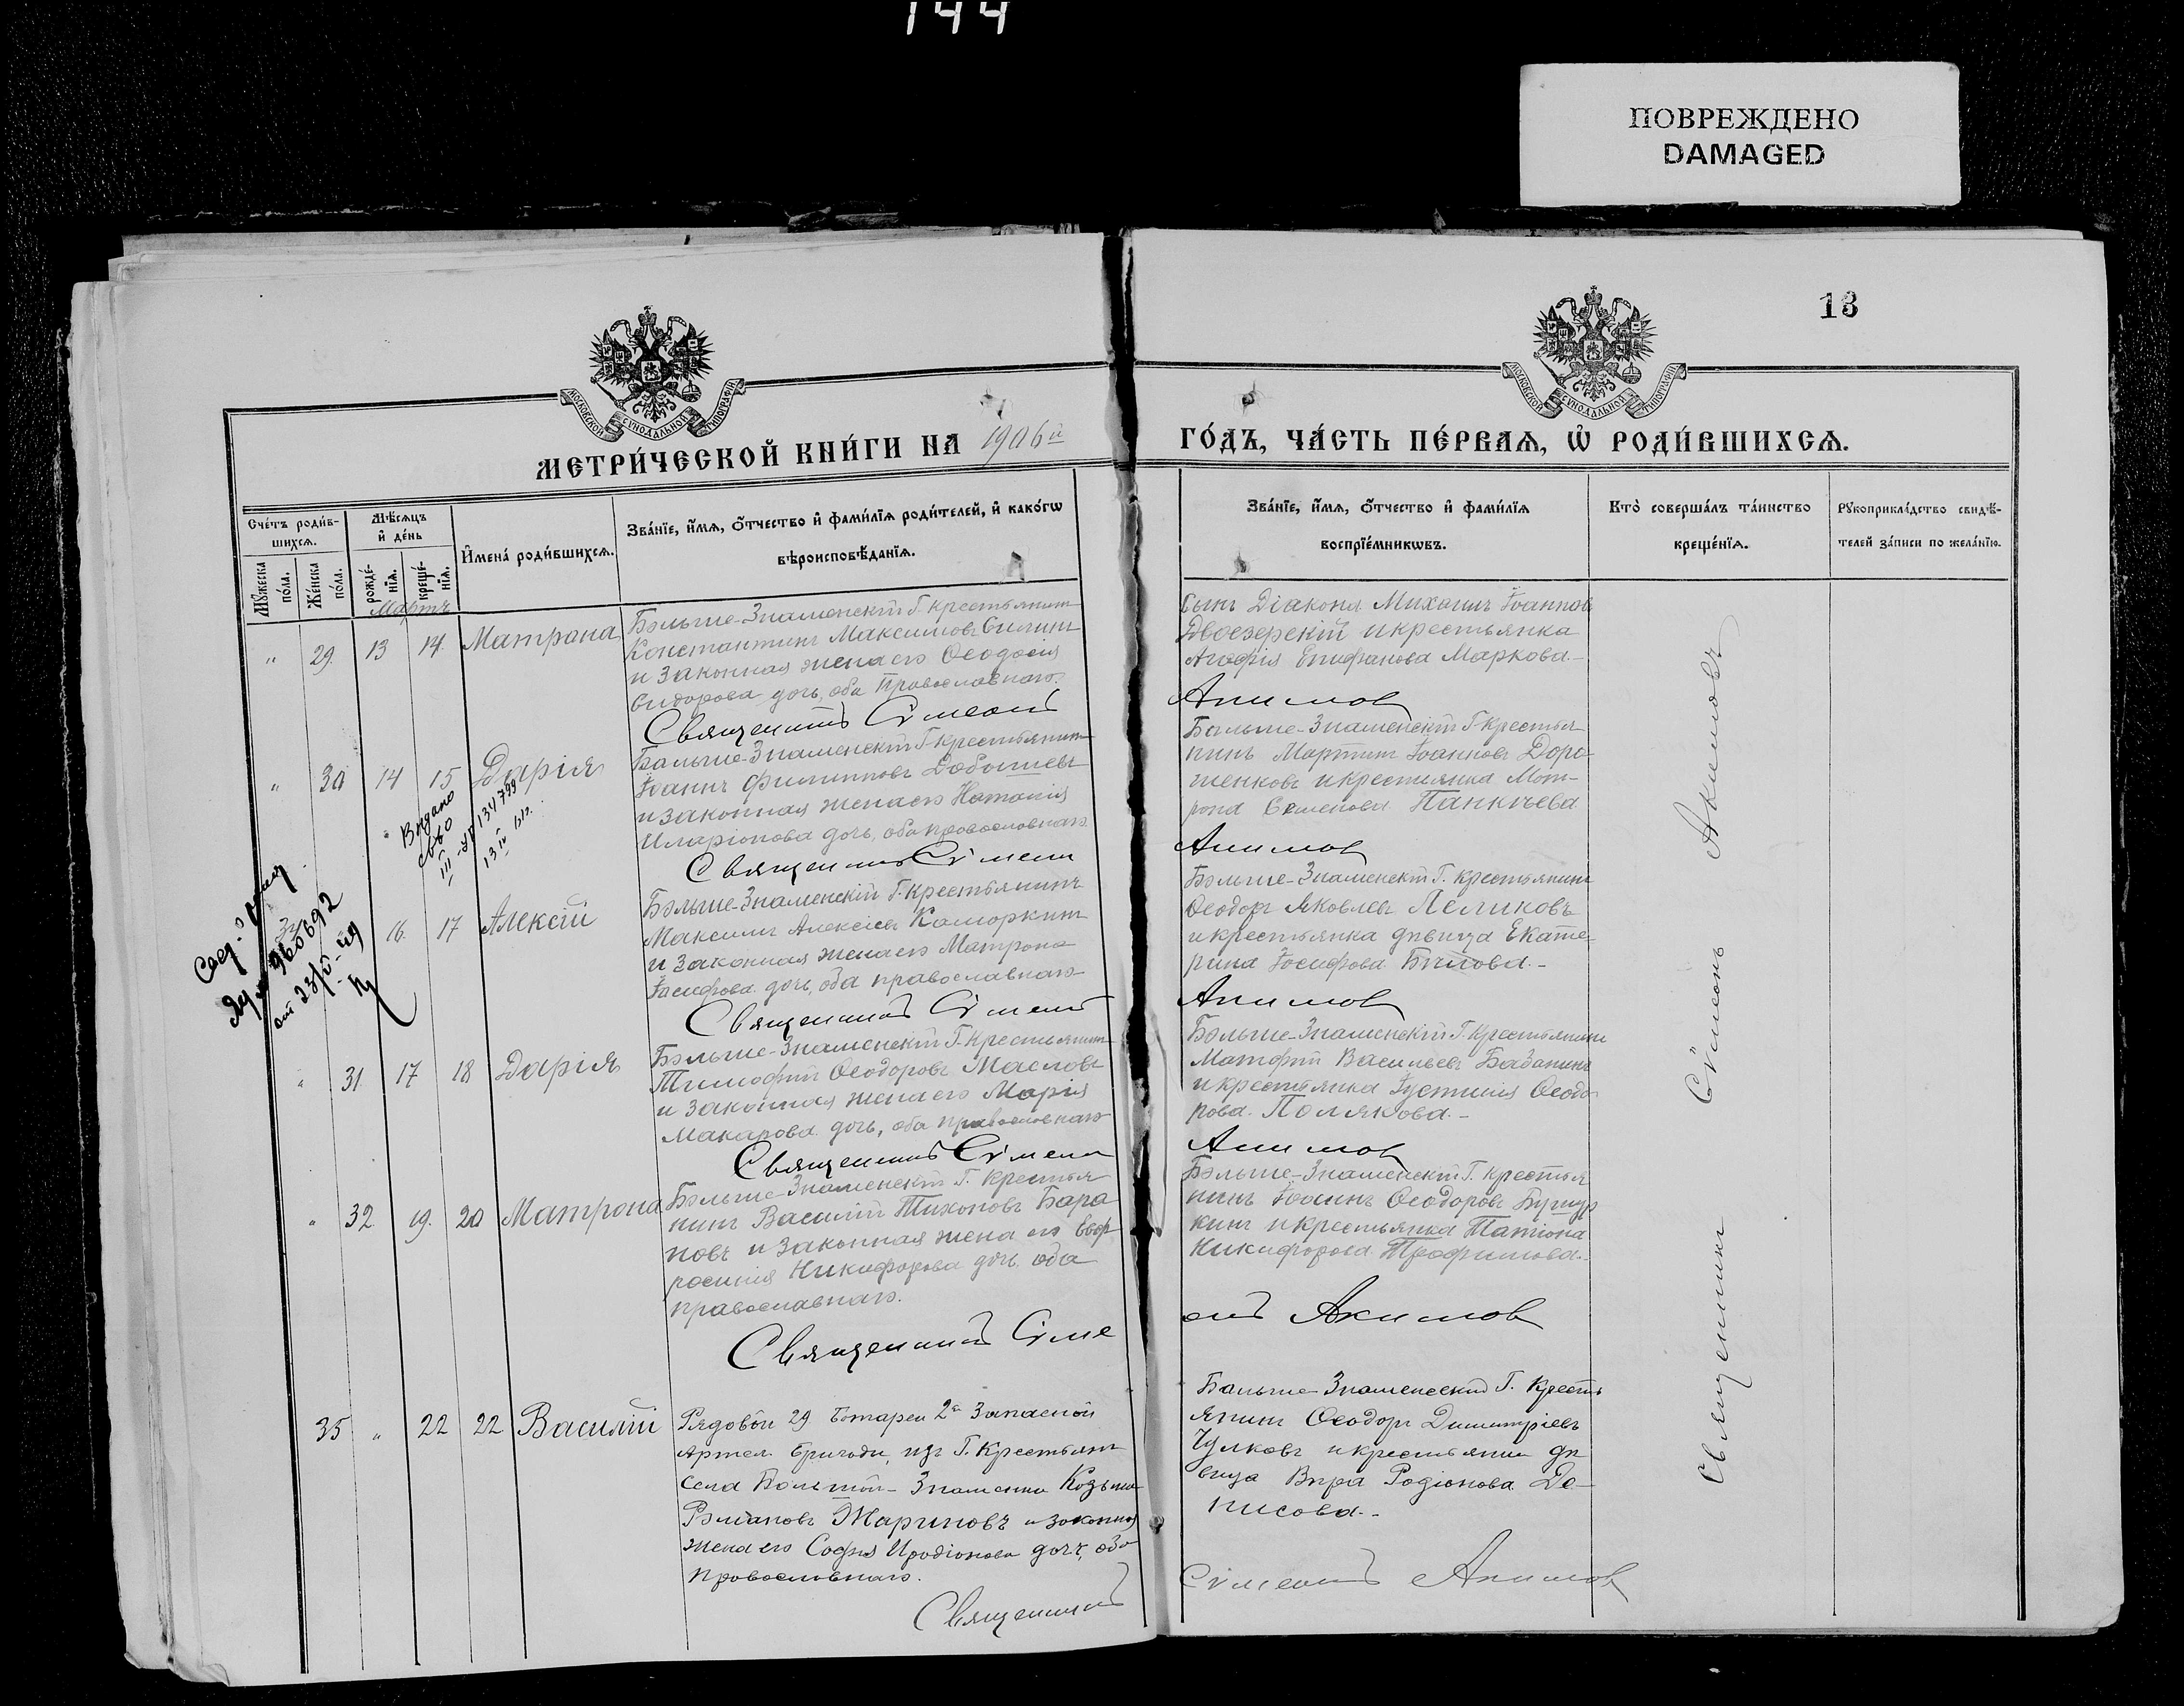 144
ПОВРЕЖДЕНО
DAMAGED
13
МОСКОВСКОЙ СѴНОДАЛЬНОЙ ТИПОГРАФІИ
МОСКОВСКОЙ СѴНОДАЛЬНОЙ ТИПОГРАФІИ
МЕТРИ́ЧЕСКОЙ КНИ́ГИ НА 1906й ГО́ДЪ, ЧА́СТЬ ПЕ́РВАѦ, Ѡ҆ РОДИ́ВШИХСѦ.
Сче́тъ роди́в-
шихсѧ.
Мꙋ́жеска по́ла.
Же́нска по́ла.
Мѣ́сѧцъ
и҆ де́нь
рожде́-
нїѧ.
креще́-
нїѧ.
И҆мена̀ роди́вшихсѧ.
Зва́нїе, и҆́мѧ, ѻ҆́тчество и҆ фами́лїѧ роди́телей, и҆ како́гѡ
вѣроисповѣ́данїѧ.
Зва́нїе, и҆́мѧ, ѻ҆́тчество и҆ фами́лїѧ
воспрїе́мникѡвъ.
Кто̀ соверша́лъ та́инство
креще́нїѧ.
Рꙋкоприкла́дство свидѣ́-
телей за́писи по жела́нїю.
Мартъ
" 29. 13 14. Матрона
Больше-Знаменскій Г. крестьянинъ
Константинъ Максимовъ Силинъ
и законная жена его Ѳеодосія
Сидорова дочь, оба Православнаго.
Священникъ Сѵмеонъ
Сынъ Діакона Михаилъ Іоанновъ
Двоезерскій и крестьянка
Агафія Епифанова Маркова.-
Акимовъ
" 30 14 15 Дарія
Больше-Знаменскій Г. крестьянинъ
Іоаннъ Филипповъ Добышевъ
и законная жена его Наталія
Иларіонова дочь, оба православнаго.
Священникъ Сѵмеонъ
Больше-Знаменскій Г. Крестья-
нинъ Мартинъ Іоанновъ Доро-
шенковъ и крестьянка Мат-
рона Семенова Панкѣева
Акимовъ
Выдано
св-во
III-УР 134799
13 IV
34 " 16. 17 Алексій
960692
от 23/V-
Больше-Знаменскій Г. крестьянинъ
Максимъ Алексіевъ Каморкинъ
и законная жена его Матрона
Іосифова дочь, оба православнаго
Священникъ Сѵмеонъ
Больше-Знаменскій Г. крестьянинъ
Ѳеодоръ Яковлевъ Леликовъ
и крестьянка дѣвица Екате-
рина Іосифова Бѣлова.-
Акимовъ
" 31 17 18 Дарія
Больше-Знаменскій Г. Крестьянинъ
Тимофѣй Ѳеодоровъ Масловъ
и законная жена его Марія
Макарова дочь, оба православнаго
Священникъ Сѵмеонъ
Больше-Знаменскій Г. Крестьянинъ
Матфѣй Васильевъ Бабанинъ
и крестьянка Іустинія Ѳеодо-
рова Полякова.-
Акимовъ
" 32 19. 20 Матрона
Больше-Знаменскій Г. крестья-
нинъ Василій Тихоновъ Бара-
новъ и законная жена его Евф-
росинія Никифорова дочь, оба
православнаго.
Священникъ Сѵме
Больше-Знаменскій Г. Крестья
нинъ Іоаннъ Ѳеодоровъ
кинъ и крестьянка Татіана
Никифорова Трофимова.-
онъ Акимовъ
35 " 22 22 Василій
Рядовой 29 Батареи 2й Запасной
Артел. бригады, изъ Г. Крестьянъ
села Большой-Знаменки Козьма
Романовъ Жариновъ и законная
жена его Софія Иродіонова дочь, оба
Православнаго.
Священникъ
Больше-Знаменскій Г. Кресть
янинъ Ѳеодоръ Димитріевъ
Чулковъ и крестьянка дѣ-
вица Вѣра Родіонова Де-
нисова.-
Сѵмеонъ Акимовъ
Священникъ Сѵмеонъ Акимовъ